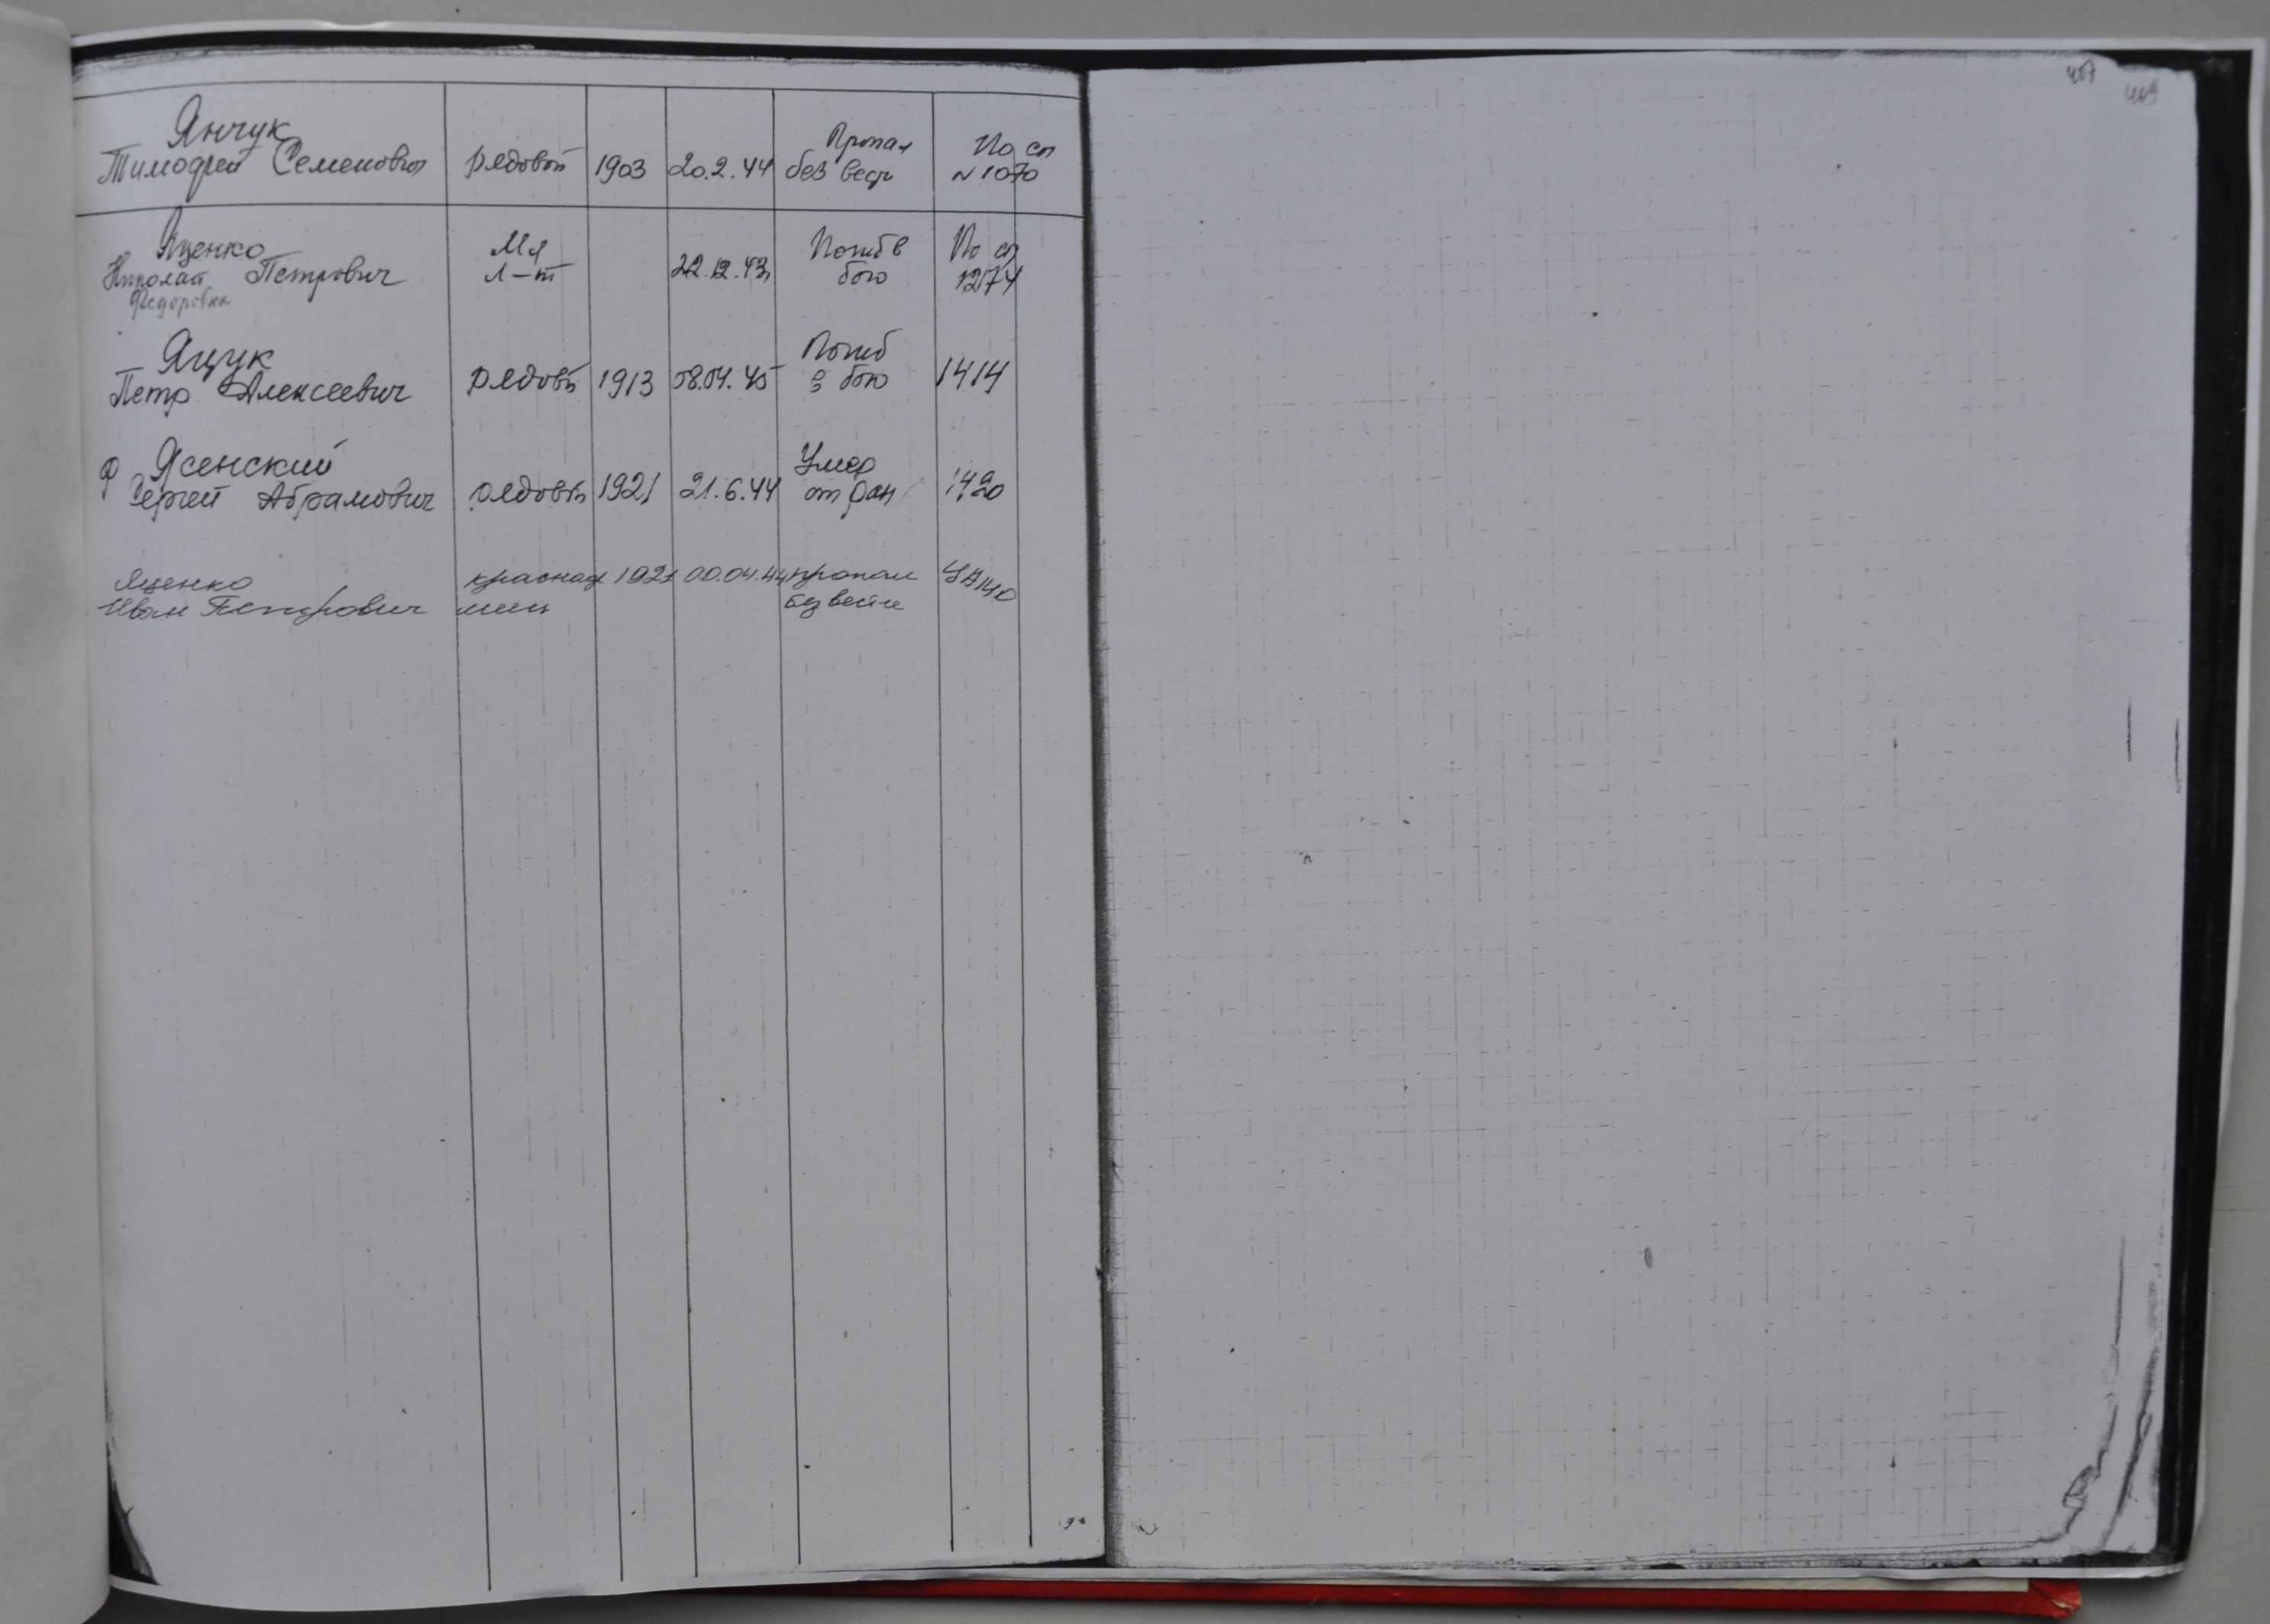 Янчук
Тимофей Семенович рядовой 1903 20.2.44 Пропал без вести По сп N 1070
Яценко
Николай Петрович Мл Л-т 22.12.43 Погиб в бою По сп 1274
Федоровка
Яцук
Петр Алексеевич рядовой 1913 08.04.45 Погиб в бою 1414
Ф Ясенский
Сергей Абрамович рядовой 1921 21.6.44 Умер от ран 1420
Яценко красноар 1921 00.04.44 пропал
Иван Петрович меец без вести